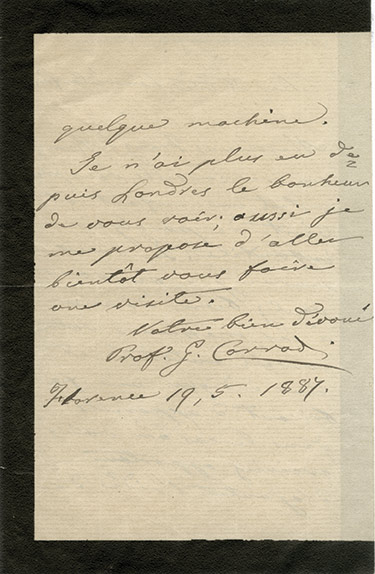 quelque machine.
Je n'ai plus eu de=
puis Londres le bonheur
de vous voir; aussi je
me propose d'aller
bientôt vous faire
une visite.
Votre bien dévoué
Prof. G. Corrad
Florence 19, 5. 1887.